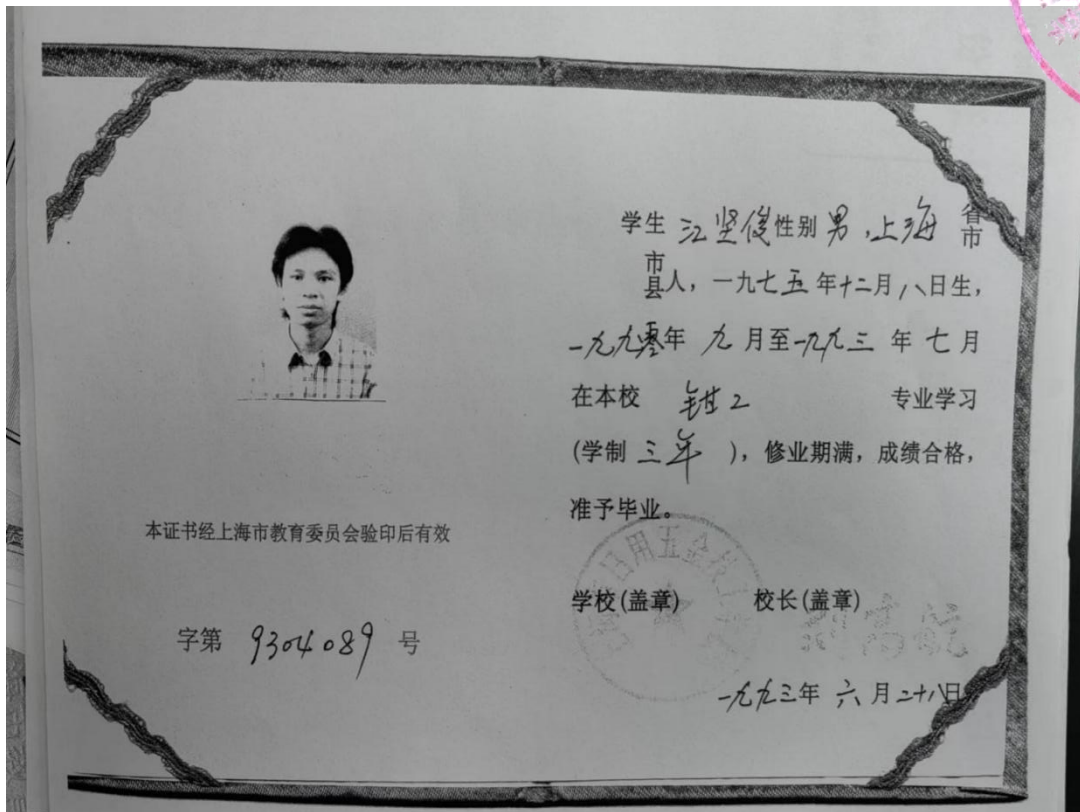 本证书经上海市教育委员会验印后有效
字第 9304089 号
学生 江坚俊 性别 男，上海 省市
市县人，一九七五年十二月八日生，
一九九零年 九 月至一九九三 年 七 月
在本校 钳工 专业学习
(学制 三年 )，修业期满，成绩合格，
准予毕业。
学校(盖章) 校长(盖章)
一九九三年 六 月二十八日